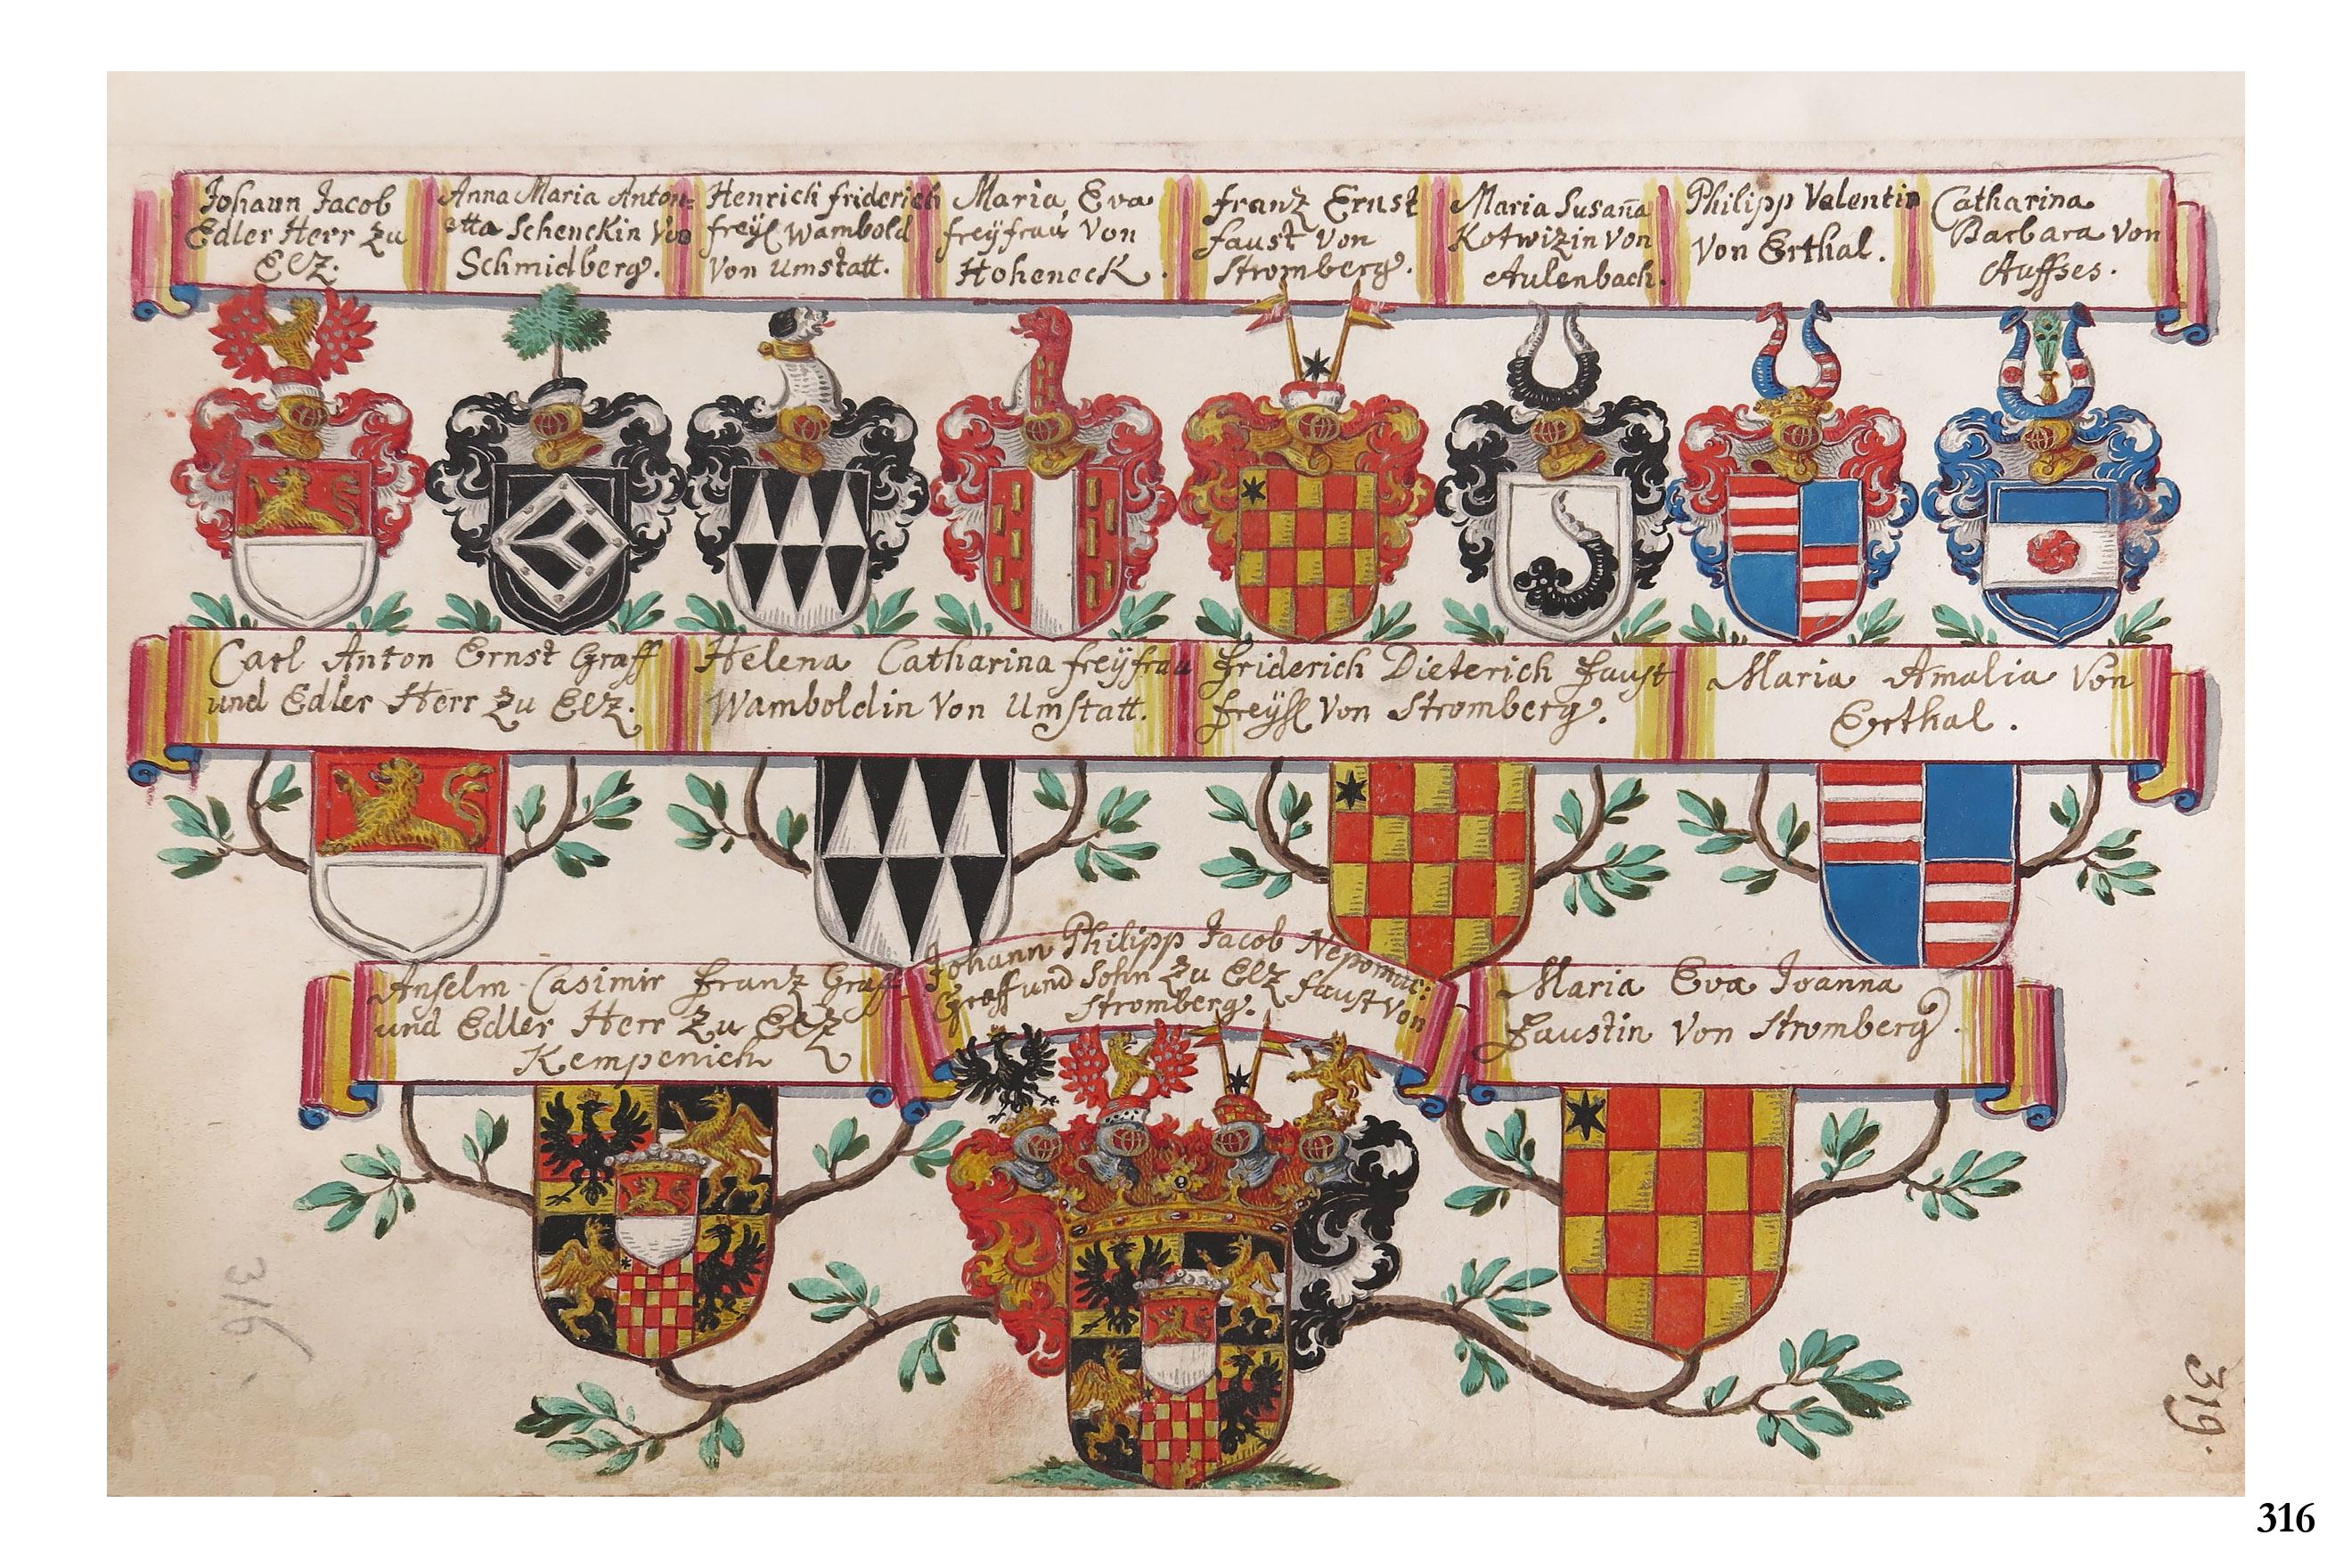 Johann Jacob
Edler Herr Zu
Elz.
Anna Maria Anton=
etta Schenckin Von
Schmidberg.
Henrich friderich
freÿl Wambold
Von Umstatt.
Maria Eva
freÿfrau Von
Hoheneck.
franz Ernst
faust Von
Stromberg.
Maria Susan̄a
Kotwizin Von
Aulenbach.
Philipp Valentin
Von Erthal.
Catharina
Barbara Von
Auffses.
Carl Anton Ernst Graff
und Edler Herr Zu Elz.
Helena Catharina freÿfrau
Wamboldin Von Umstatt.
friderich Dieterich faust
Von Stromberg.
Maria Amalia Von
Erthal.
Anselm Casimir franz Graff
und Edler Herr Zu Elz
Kempenich
Johann Philipp Jacob Nepomuc:
Graff und Sohn Zu Elz faust Von
Stromberg.
Maria Eva Joanna
faustin Von Stromberg.
316
319.
316